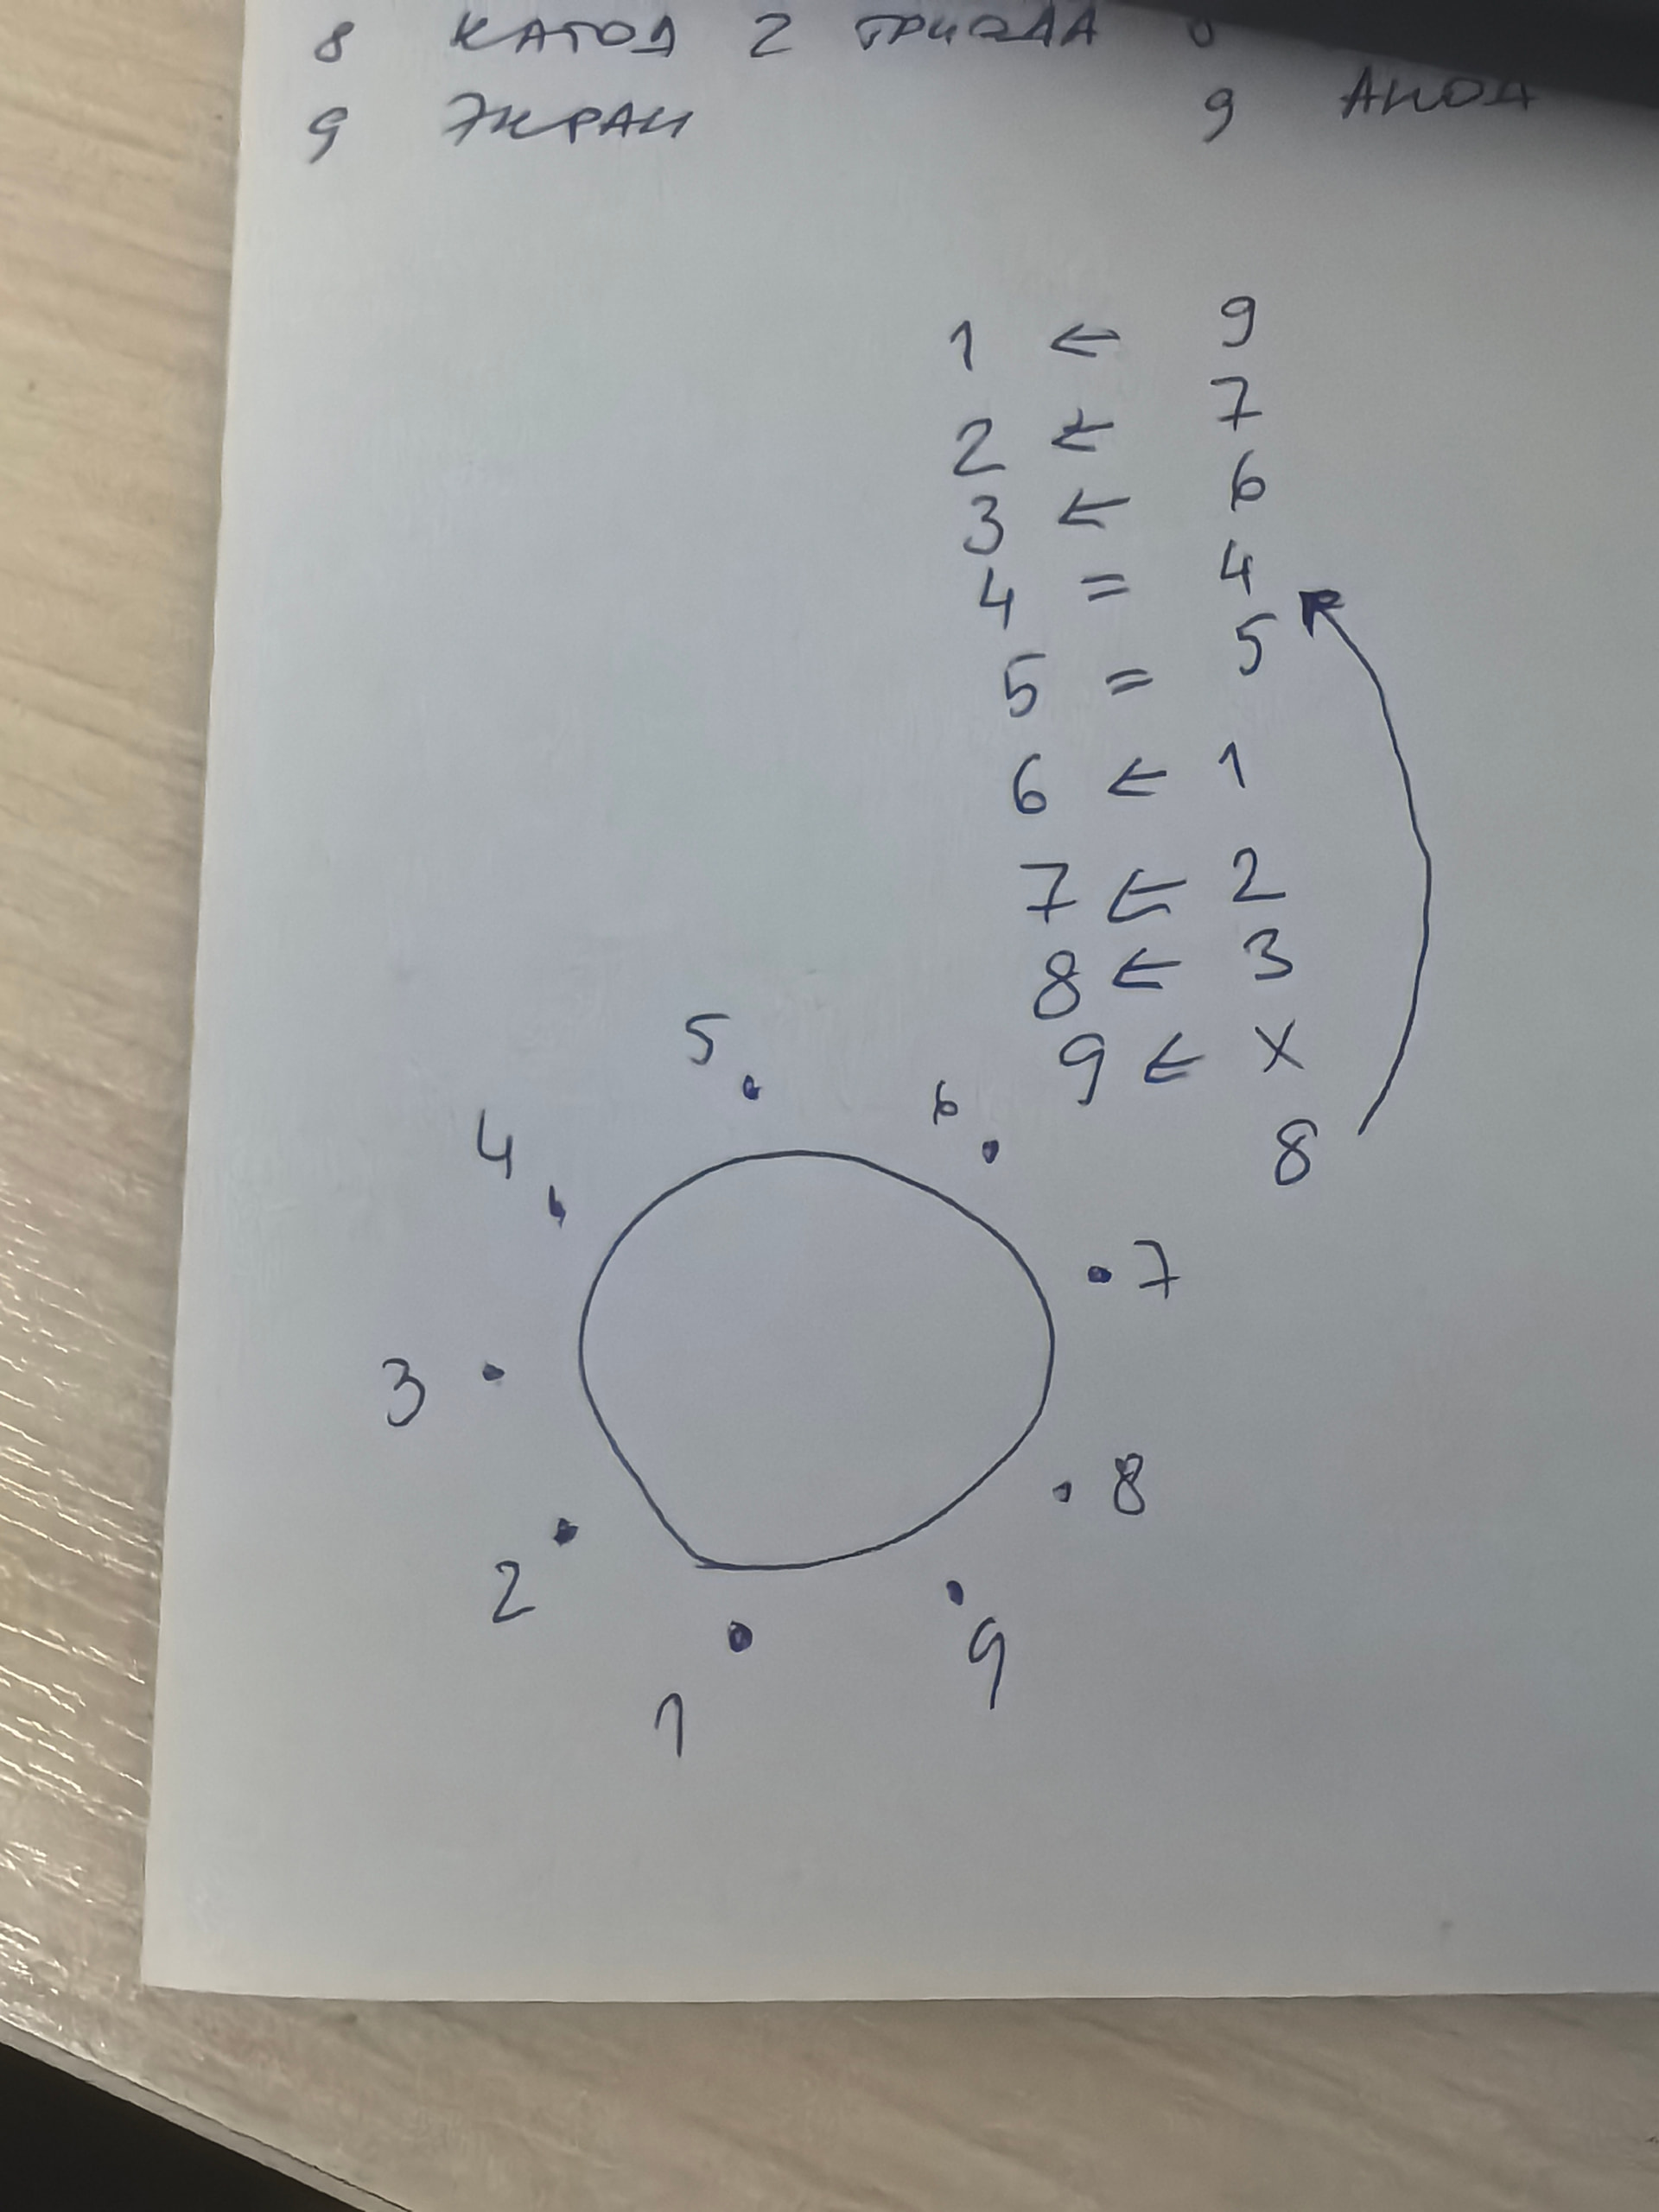 8 КАТОД 2 ТРИОДА
9 ЭКРАН 9 АНОД
1 ← 9
2 ← 7
3 ← 6
4 = 4
5 = 5
6 ← 1
7 ← 2
8 ← 3
9 ← X
8
5
6
4
7
3
8
2
9
1